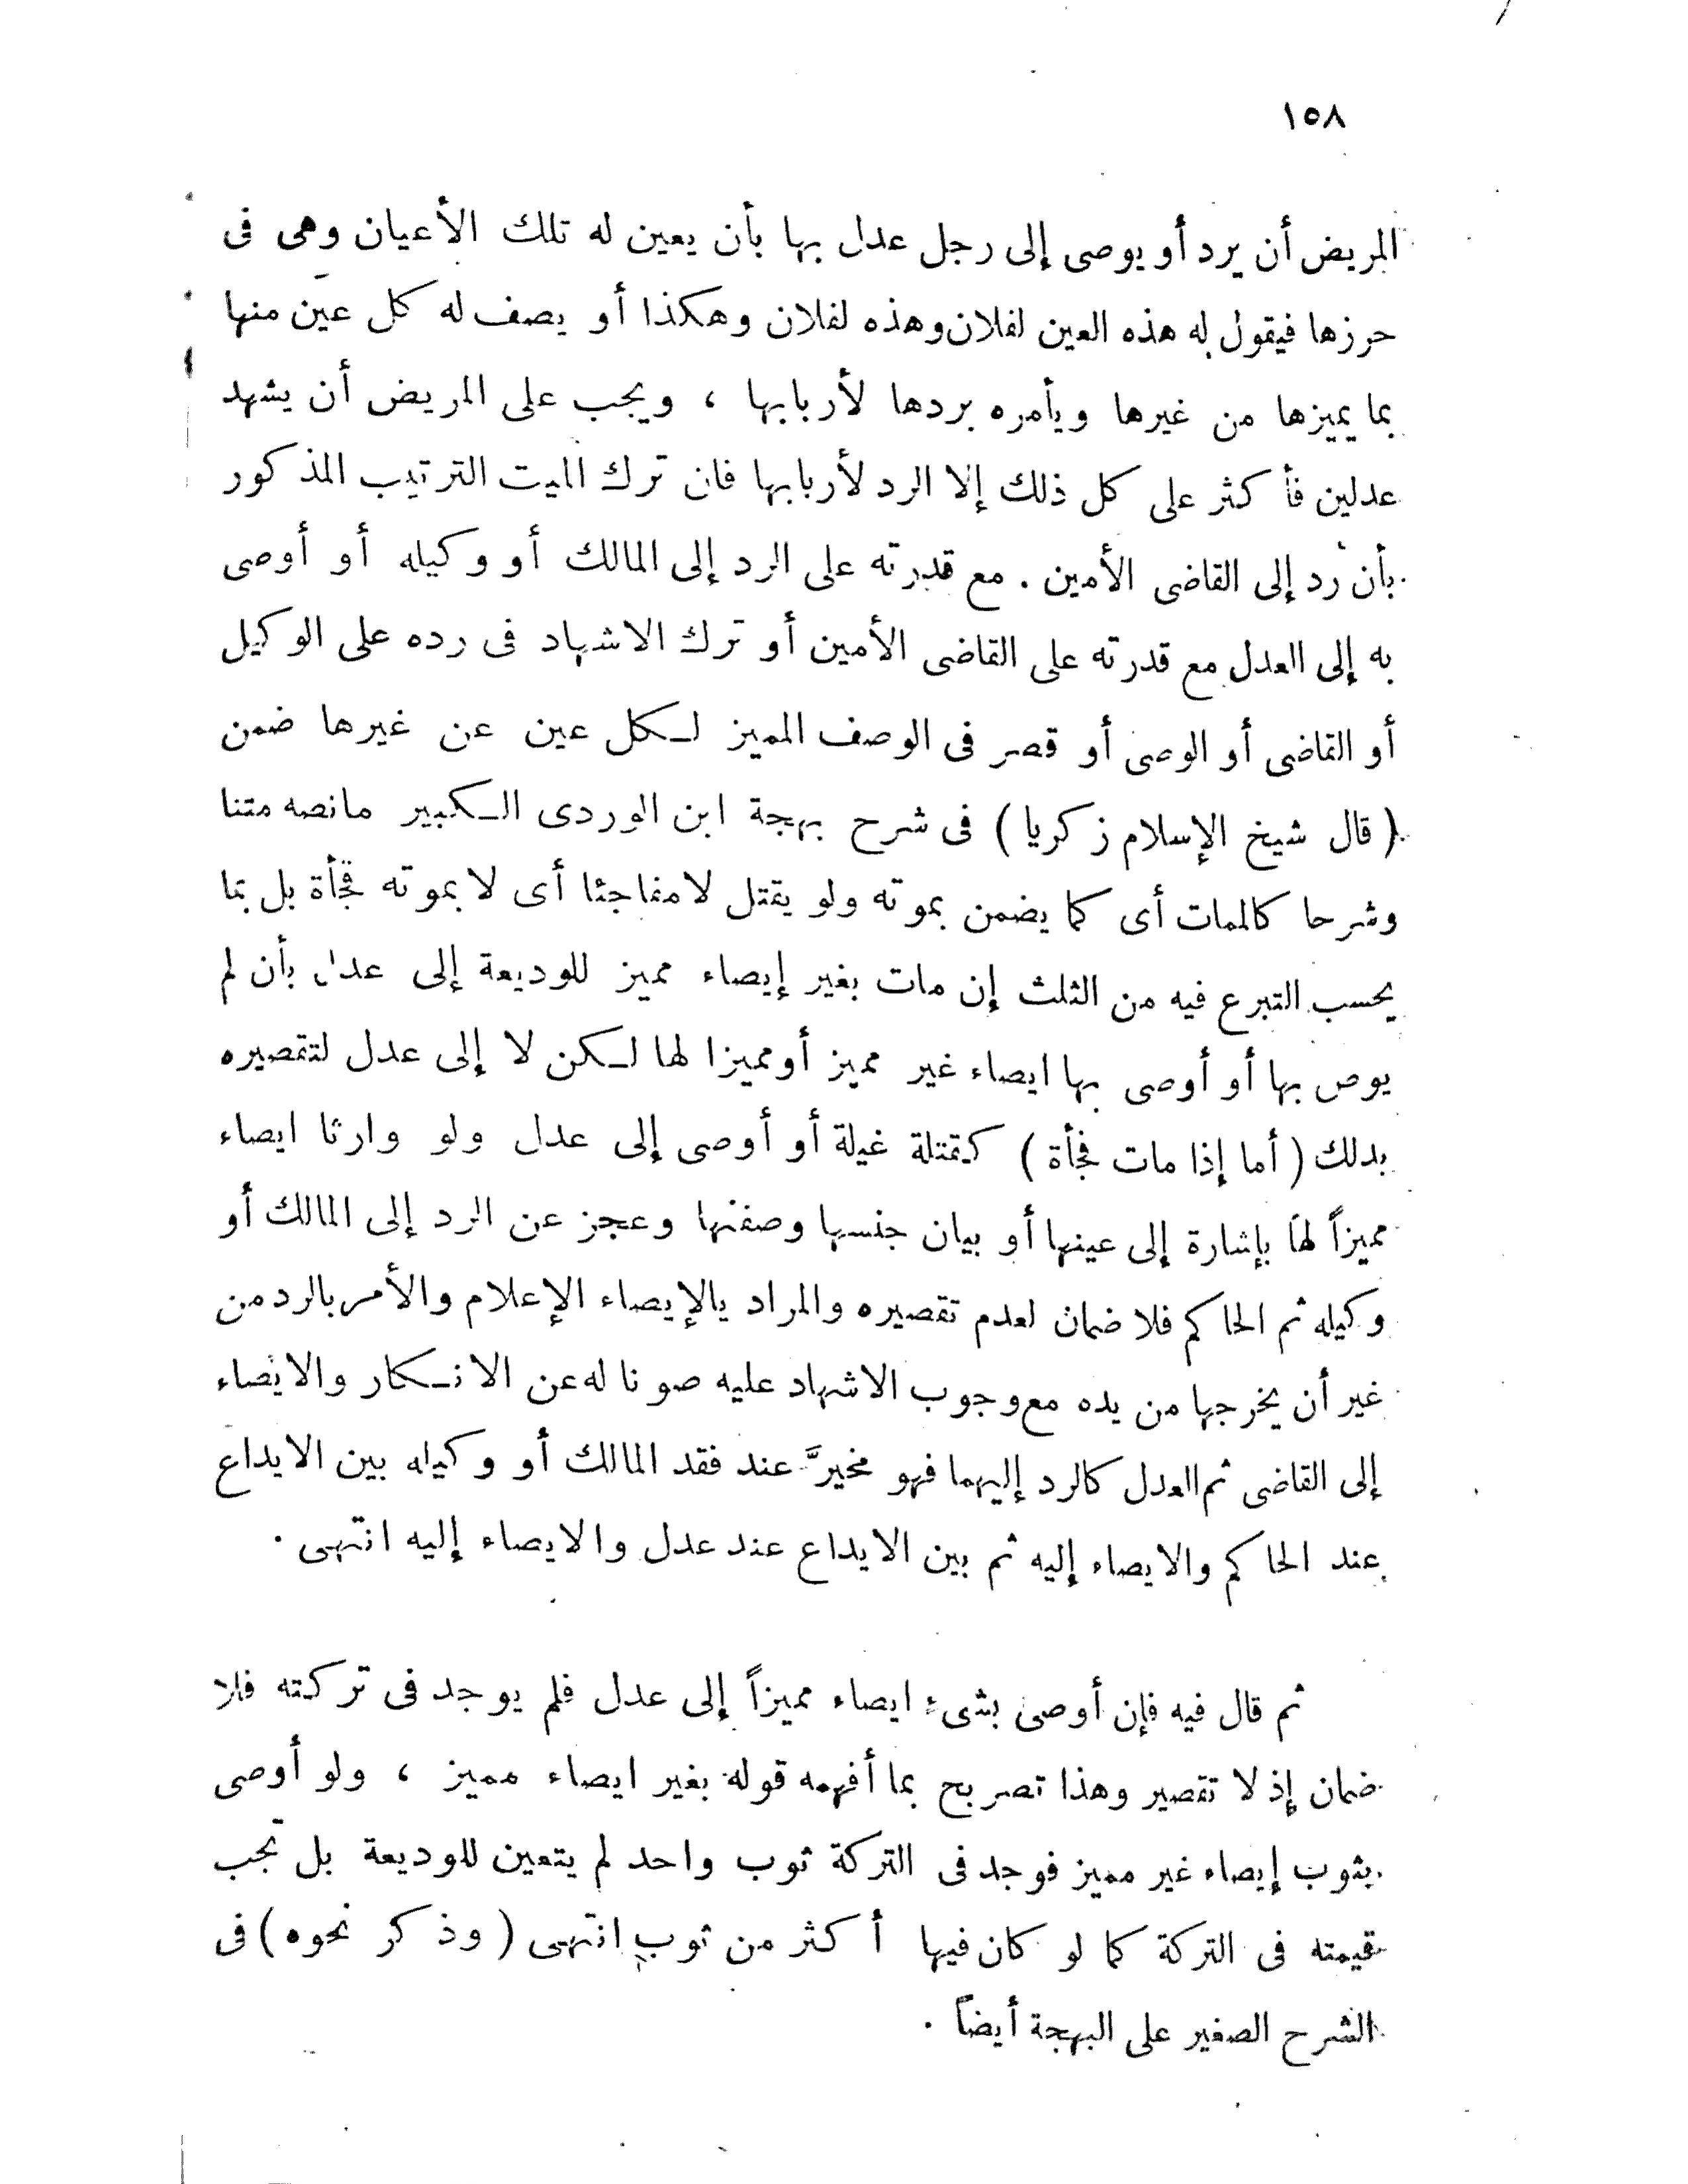 ١٥٨
المريض أن يرد أو يوصى إلى رجل عدل بها بأن يعين له تلك الأعيان وهى فى
حرزها فيقول له هذه العين لفلان وهذه لفلان وهكذا أو يصف له كل عين منها
بما يميزها من غيرها ويأمره بردها لأربابها ، ويجب على المريض أن يشهد
عدلين فأكثر على كل ذلك إلا الرد لأربابها فان ترك الميت الترتيب المذكور
بأن رد إلى القاضى الأمين . مع قدرته على الرد إلى المالك أو وكيله أو أوصى
به إلى العدل مع قدرته على القاضى الأمين أو ترك الاشهاد فى رده على الوكيل
أو القاضى أو الوصى أو قصر فى الوصف المميز لكل عين عن غيرها ضمن
( قال شيخ الإسلام زكريا ) فى شرح بهجة ابن الوردى الكبير مانصه متنا
وشرحا كالممات أى كما يضمن بموته ولو يقتل لا مفاجئا أى لا بموته فجأة بل بما
يحسب التبرع فيه من الثلث إن مات بغير إيصاء مميز للوديعة إلى عدل بأن لم
يوص بها أو أوصى بها ايصاء غير مميز أومميزا لها لكن لا إلى عدل لتقصيره
بدلك ( أما إذا مات فجأة ) كقتلة غيلة أو أوصى إلى عدل ولو وارثا ايصاء
مميزاً لها بإشارة إلى عينها أو بيان جنسها وصفتها وعجز عن الرد إلى المالك أو
وكيله ثم الحاكم فلا ضمان لعدم تقصيره والمراد يالإيصاء الإعلام والأمر بالرد من
غير أن يخرجها من يده مع وجوب الاشهاد عليه صونا له عن الانكار والايصاء
إلى القاضى ثم العدل كالرد إليهما فهو مخيرَّ عند فقد المالك أو وكيله بين الايداع
عند الحاكم والايصاء إليه ثم بين الايداع عند عدل والايصاء إليه انتهى .
ثم قال فيه فإن أوصى بشىء ايصاء مميزاً إلى عدل فلم يوجد فى تركته فلا
ضمان إذ لا تقصير وهذا تصريح بما أفهمه قوله بغير ايصاء مميز ، ولو أوصى
بثوب إيصاء غير مميز فوجد فى التركة ثوب واحد لم يتعين للوديعة بل تجب
قيمته فى التركة كما لو كان فيها أكثر من ثوب انتهى ( وذكر نحوه ) فى
الشرح الصغير على البهجة أيضاً .